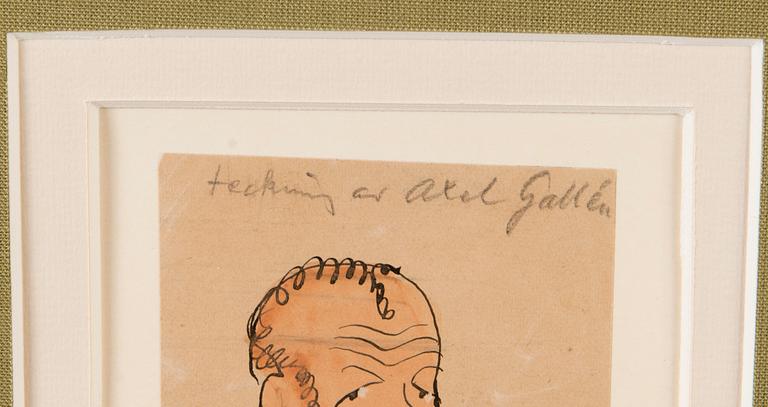 teckning av Axel Gallén